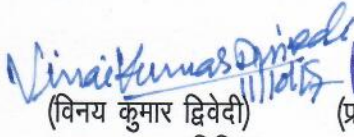 Vinai Kumar Dwivedi
11/10/17
(विनय कुमार द्विवेदी) (प्र